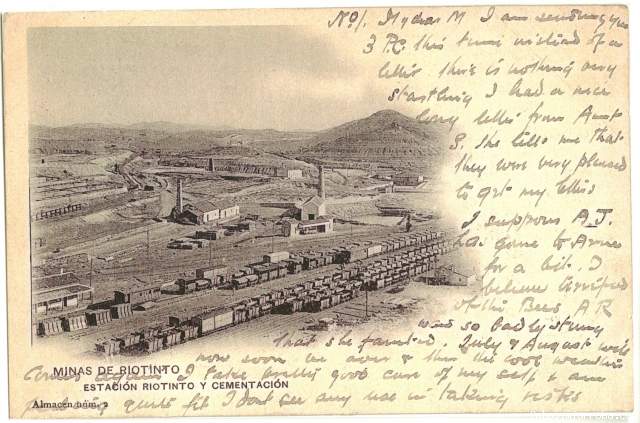 No/1. My dear M I am sending you
3 P.C. this time instead of a
letter there is nothing very
startling I had a nice
long letter from Aunt
S. she tells me that
they were very pleased
to get my letter
I suppose A.J.
has gone to
for a bit. I
believe
of the Bees A R
was so badly stung
that she fainted. July & August will
now soon be over & then the cool weather
comes again I take pretty good care of my self & am
quite fit I dont see any use in taking risks
MINAS DE RIOTINTO
ESTACIÓN RIOTINTO Y CEMENTACIÓN
Almacen núm. 2